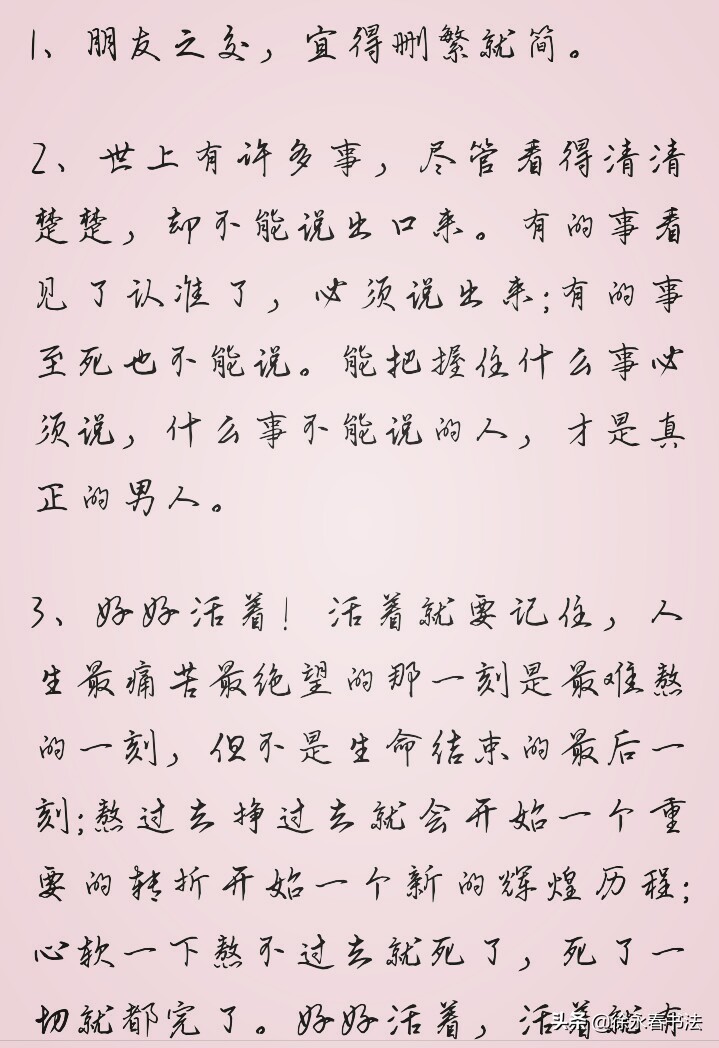 1、朋友之交，宜得删繁就简。
2、世上有许多事，尽管看得清清
楚楚，却不能说出口来。有的事看
见了认准了，必须说出来；有的事
至死也不能说。能把握住什么事必
须说，什么事不能说的人，才是真
正的男人。
3、好好活着！活着就要记住，人
生最痛苦最绝望的那一刻是最难熬
的一刻，但不是生命结束的最后一
刻；熬过去挣过去就会开始一个重
要的转折开始一个新的辉煌历程；
心软一下熬不过去就死了，死了一
切就都完了。好好活着，活着就有
头条 @徐永春书法